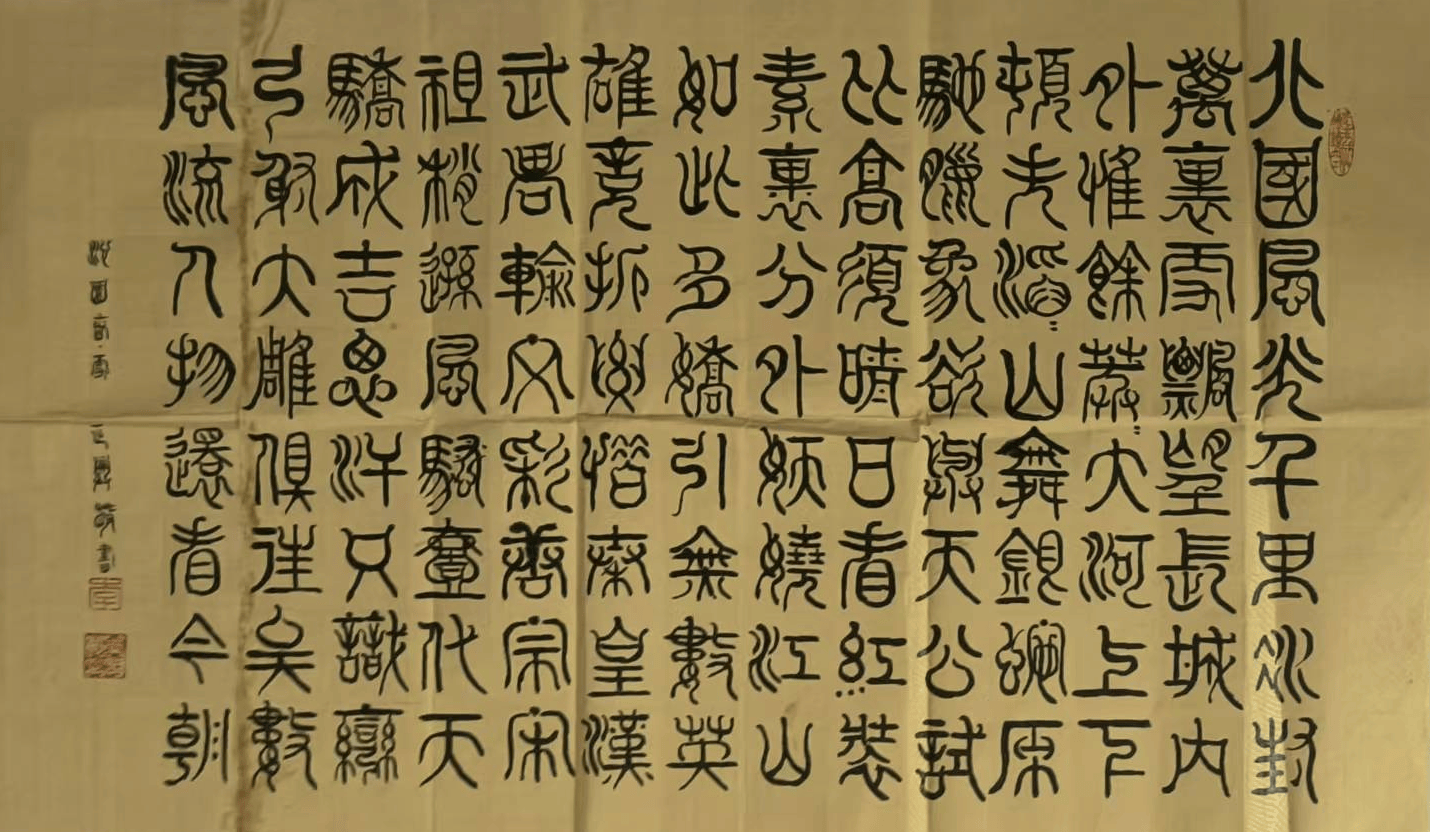 北國風光千里冰封
萬裏雪飄望長城內
外惟餘莽〻大河上下
頓失滔〻山舞銀蛇原
馳臘象欲與天公試
比高須晴日看紅裝
素裹分外妖嬈江山
如此多嬌引無數英
雄竟折腰惜秦皇漢
武略輸文彩唐宗宋
祖稍遜風騷壹代天
驕成吉思汗只識彎
弓射大雕俱往矣數
風流人物還看今朝
沁園春·雪 敬書